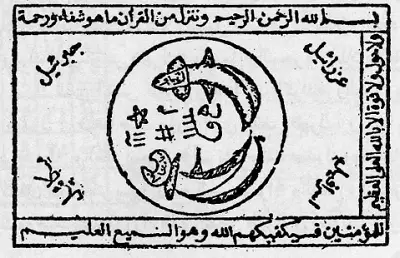 بسم الله الرحمن الرحيم وننزل من القرآن ما هو شفاء ورحمة
جبرئيل
عزرائيل
ولا حول ولا قوة الا بالله العلي العظيم
للمؤمنين فسيكفيكهم الله وهو السميع العليم